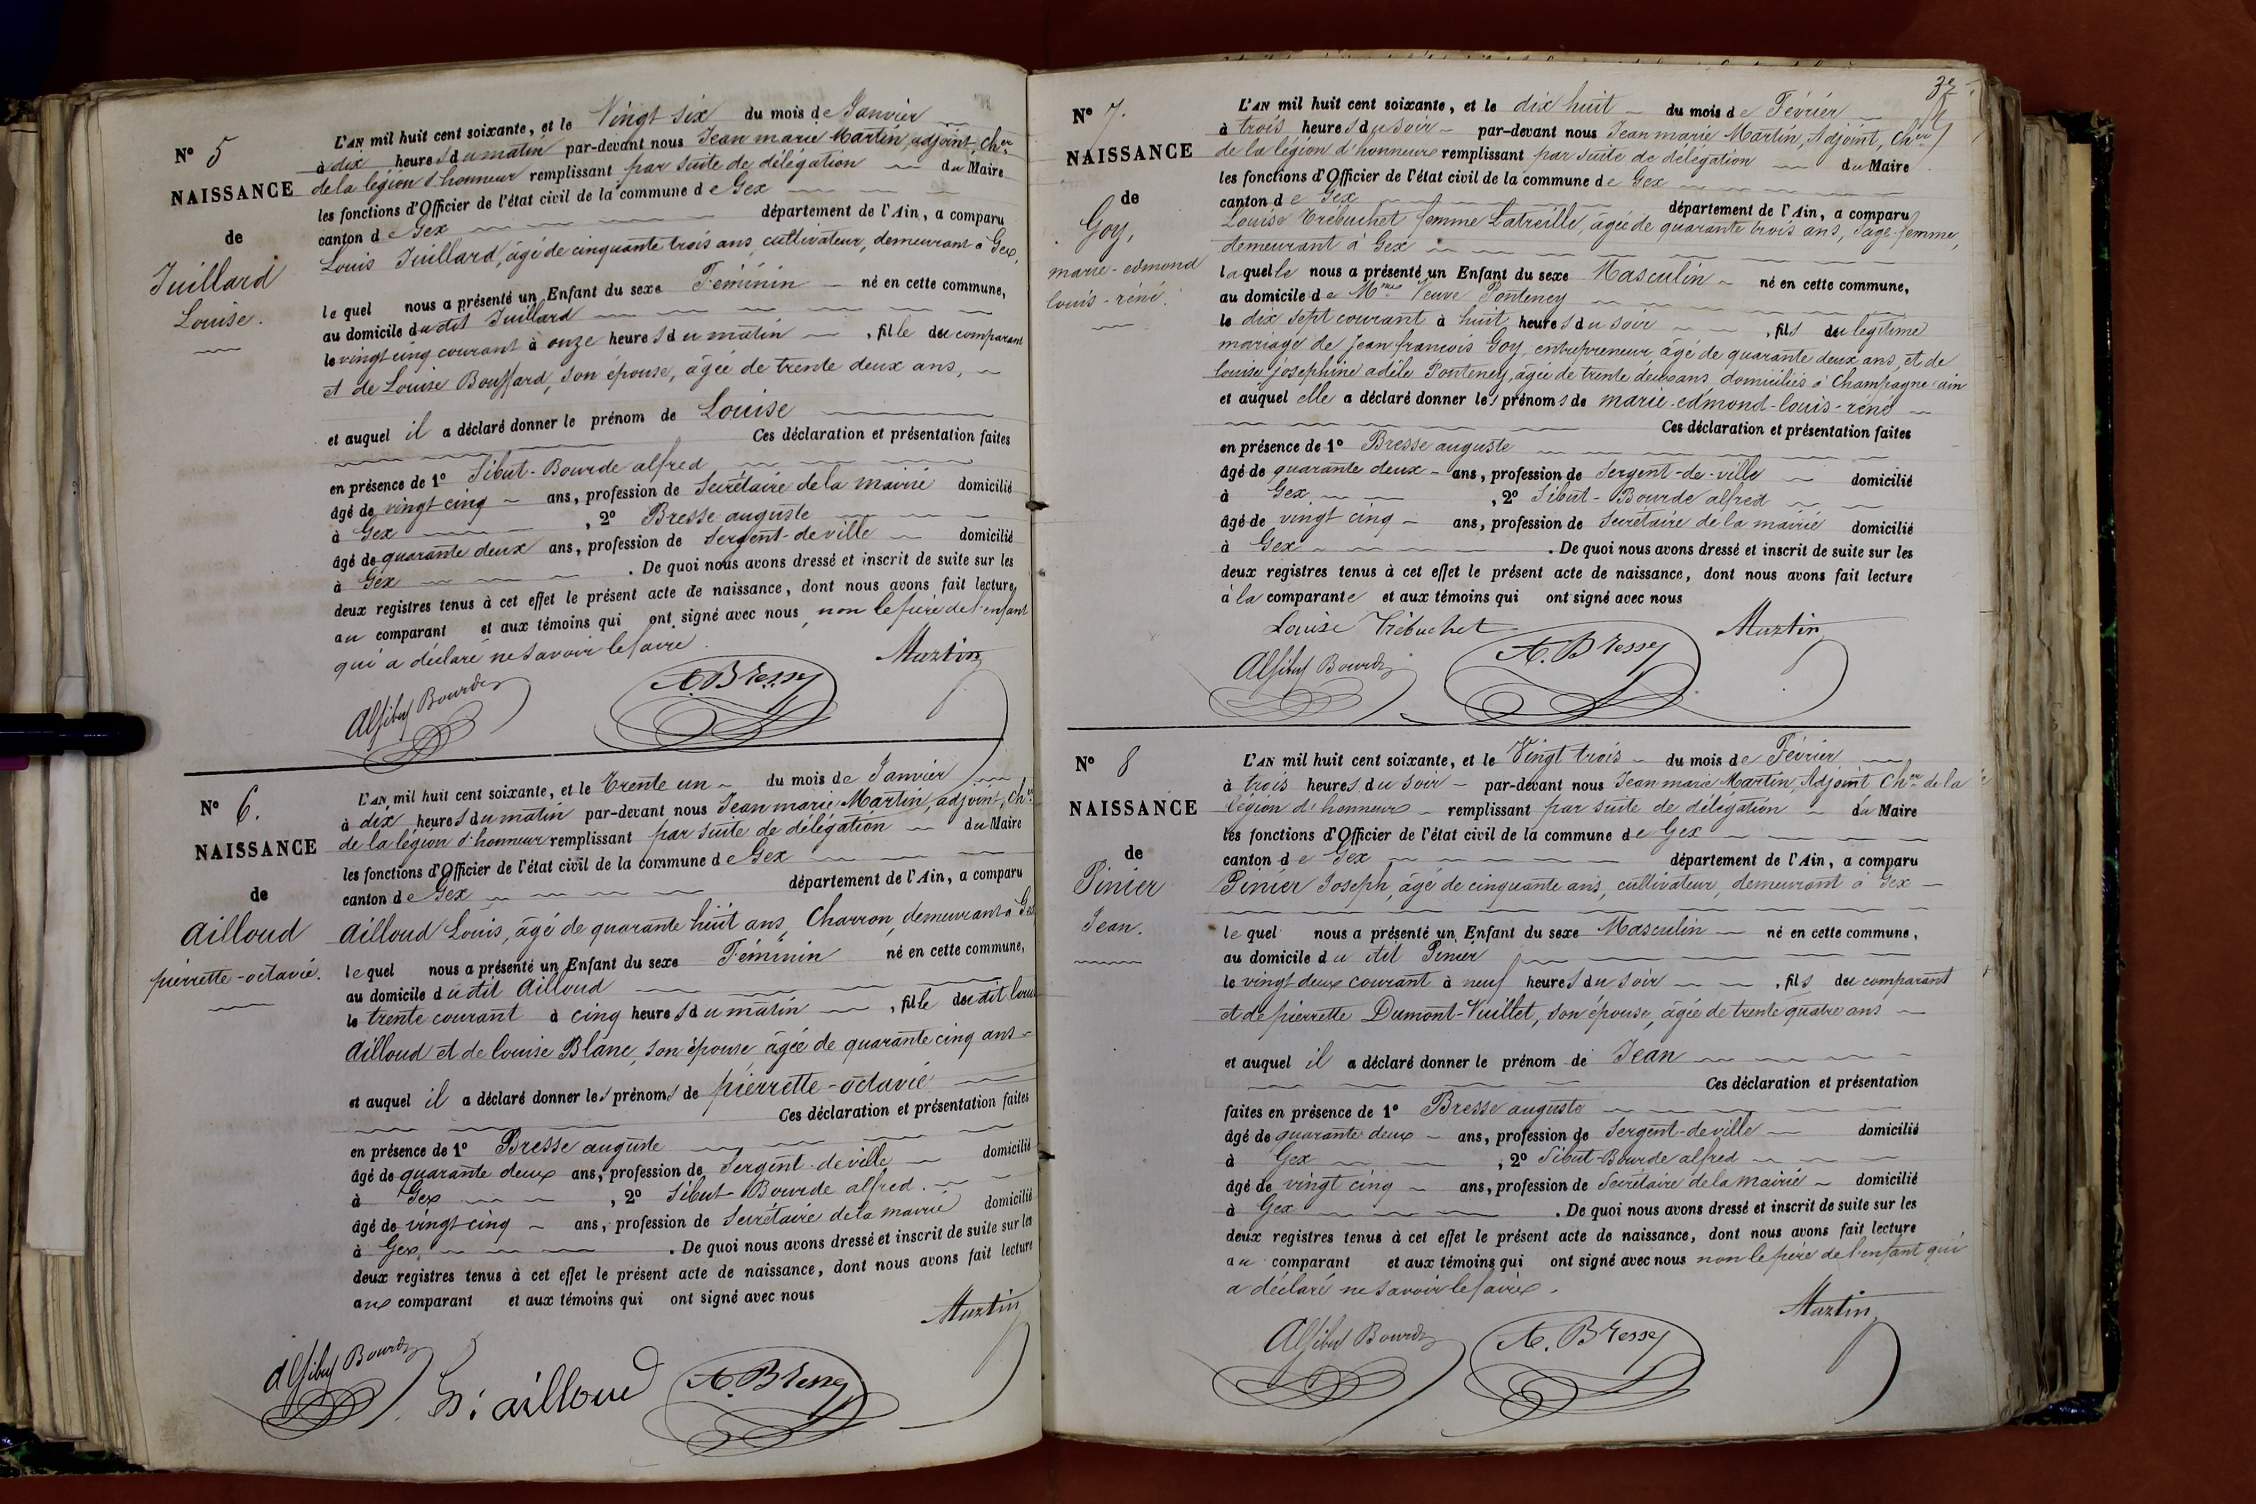 N° 5
NAISSANCE
de
Juillard
Louise.
L'AN mil huit cent soixante, et le Vingt six du mois de Janvier
à dix heures du matin par-devant nous Jean marie Martin, adjoint, Cher
de la légion d'honneur remplissant par suite de délégation du Maire
les fonctions d'Officier de l'état civil de la commune de Gex
canton de Gex département de l'Ain, a comparu
Louis Juillard, âgé de cinquante trois ans, cultivateur, demeurant à Gex,
le quel nous a présenté un Enfant du sexe Féminin né en cette commune,
au domicile du dit Juillard
le vingt cinq courant à onze heures du matin , fille du comparant
et de Louise Bouffard, son épouse, âgée de trente deux ans,
et auquel il a déclaré donner le prénom de Louise
Ces déclaration et présentation faites
en présence de 1° Sibut-Bourde alfred
âgé de vingt cinq ans, profession de Secrétaire de la mairie domicilié
à Gex , 2° Bresse auguste
âgé de quarante deux ans, profession de Sergent-de ville domicilié
à Gex . De quoi nous avons dressé et inscrit de suite sur les
deux registres tenus à cet effet le présent acte de naissance, dont nous avons fait lecture
au comparant et aux témoins qui ont signé avec nous, non le père de l'enfant
qui a déclaré ne savoir le faire.
Martin
A. Bresse
Alf Sibut Bourde
N° 6.
NAISSANCE
de
Ailloud
pierrette-octavie.
L'AN mil huit cent soixante, et le Trente un du mois de Janvier
à dix heures du matin par-devant nous Jean marie Martin, adjoint, Cher
de la légion d'honneur remplissant par suite de délégation du Maire
les fonctions d'Officier de l'état civil de la commune de Gex
canton de Gex département de l'Ain, a comparu
Ailloud Louis, âgé de quarante huit ans, Charron, demeurant à Gex
le quel nous a présenté un Enfant du sexe Féminin né en cette commune,
au domicile du dit Ailloud
le trente courant à cinq heures du matin , fille du dit Louis
Ailloud et de Louise Blanc, son épouse, âgée de quarante cinq ans
et auquel il a déclaré donner les prénoms de pierrette-octavie
Ces déclaration et présentation faites
en présence de 1° Bresse auguste
âgé de quarante deux ans, profession de Sergent-de ville domicilié
à Gex , 2° Sibut-Bourde alfred.
âgé de vingt cinq ans, profession de Secrétaire de la mairie domicilié
à Gex, . De quoi nous avons dressé et inscrit de suite sur les
deux registres tenus à cet effet le présent acte de naissance, dont nous avons fait lecture
aux comparant et aux témoins qui ont signé avec nous
Martin
Alf Sibut Bourde
ailloud
A. Bresse
32
N° 7.
NAISSANCE
de
Goy,
marie-edmond
louis-réné.
L'AN mil huit cent soixante, et le dix huit du mois de Février
à trois heures du soir par-devant nous Jean marie Martin, Adjoint, Cher
de la légion d'honneur remplissant par suite de délégation du Maire
les fonctions d'Officier de l'état civil de la commune de Gex
canton de Gex département de l'Ain, a comparu
Louise Trébuchet femme Latreille, âgée de quarante trois ans, Sage-femme,
demeurant à Gex
laquelle nous a présenté un Enfant du sexe Masculin né en cette commune,
au domicile de Mme Veuve Ponteney
le dix sept courant à huit heures du soir , fils du légitime
mariage de Jean françois Goy, entrepreneur âgé de quarante deux ans, et de
louise joséphine adèle Ponteney, âgée de trente deux ans domiciliés à Champagne ain
et auquel elle a déclaré donner les prénoms de marie-edmond-louis-réné
Ces déclaration et présentation faites
en présence de 1° Bresse auguste
âgé de quarante deux ans, profession de Sergent-de-ville domicilié
à Gex , 2° Sibut-Bourde alfred
âgé de vingt cinq ans, profession de Secrétaire de la mairie domicilié
à Gex . De quoi nous avons dressé et inscrit de suite sur les
deux registres tenus à cet effet le présent acte de naissance, dont nous avons fait lecture
à la comparante et aux témoins qui ont signé avec nous
Louise Trébuchet
Martin
Alf Sibut Bourde
A. Bresse
N° 8
NAISSANCE
de
Pinier
Jean.
L'AN mil huit cent soixante, et le Vingt trois du mois de Février
à trois heures du soir par-devant nous Jean marie Martin, Adjoint Cher de la
légion d'honneur remplissant par suite de délégation du Maire
les fonctions d'Officier de l'état civil de la commune de Gex
canton de Gex département de l'Ain, a comparu
Pinier Joseph, âgé de cinquante ans, cultivateur, demeurant à Gex
le quel nous a présenté un Enfant du sexe Masculin né en cette commune,
au domicile du dit Pinier
le vingt deux courant à neuf heures du soir , fils du comparant
et de pierrette Dumont-Vuillet, son épouse, âgée de trente quatre ans
et auquel il a déclaré donner le prénom de Jean
Ces déclaration et présentation
faites en présence de 1° Bresse auguste
âgé de quarante deux ans, profession de Sergent-de ville domicilié
à Gex , 2° Sibut-Bourde alfred
âgé de vingt cinq ans, profession de Secrétaire de la mairie domicilié
à Gex . De quoi nous avons dressé et inscrit de suite sur les
deux registres tenus à cet effet le présent acte de naissance, dont nous avons fait lecture
au comparant et aux témoins qui ont signé avec nous non le père de l'enfant qui
a déclaré ne savoir le faire.
Martin
Alf Sibut Bourde
A. Bresse